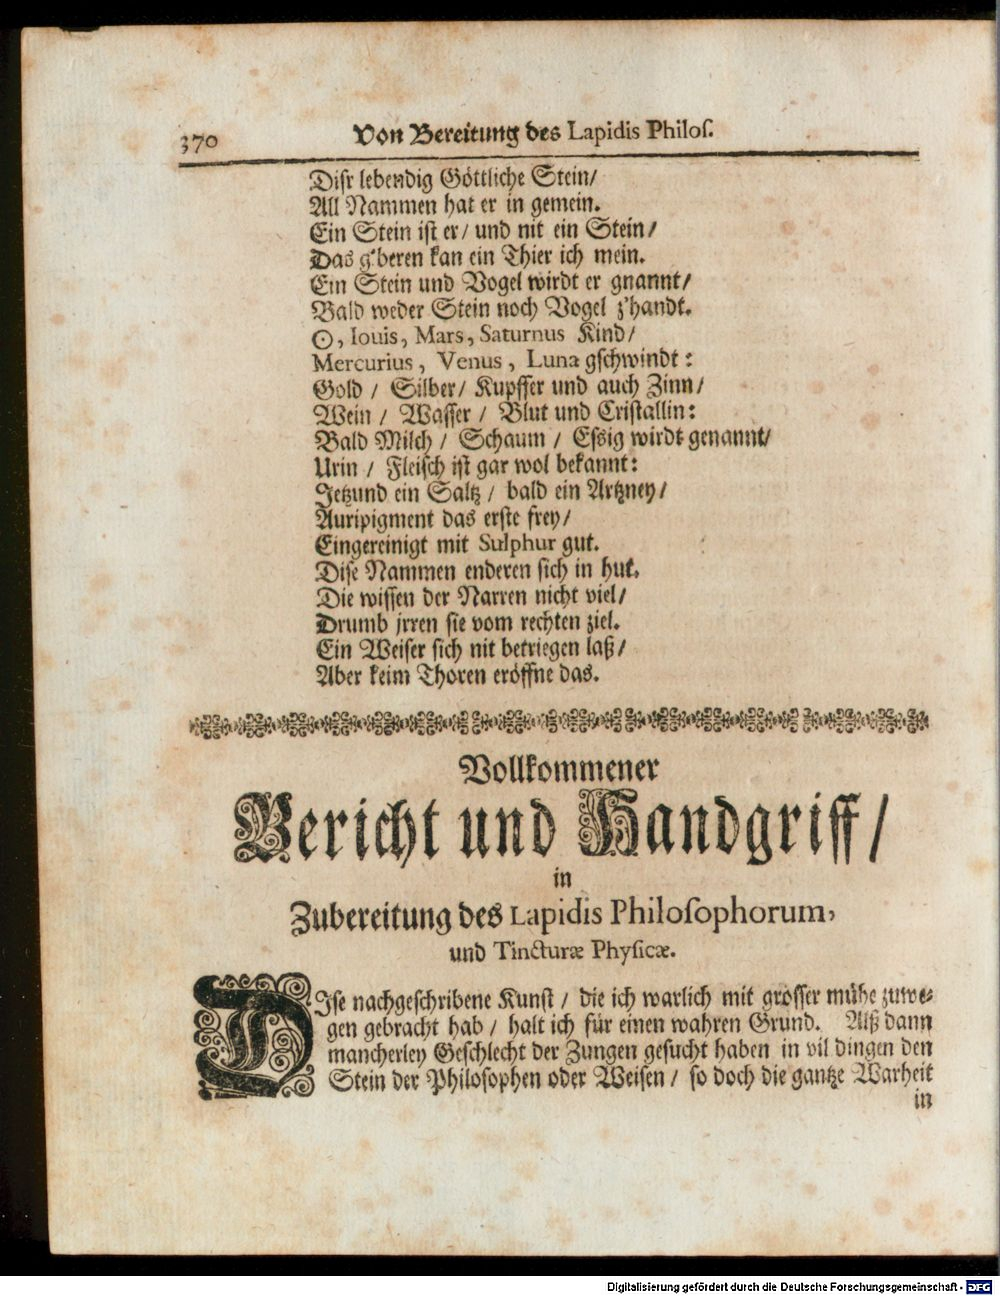 370 Von Bereitung des Lapidis Philos.
Diser lebendig Göttliche Stein/
All Nammen hat er in gemein.
Ein Stein ist er/ und nit ein Stein/
Das g'beren kan ein Thier ich mein.
Ein Stein und Vogel wirdt er gnannt/
Bald weder Stein noch Vogel z'handt.
☉, Iouis, Mars, Saturnus Kind/
Mercurius, Venus, Luna gschwindt:
Gold / Silber/ Kupffer und auch Zinn/
Wein / Wasser / Blut und Cristallin:
Bald Milch / Schaum / Essig wirdt genannt/
Urin / Fleisch ist gar wol bekannt:
Jetzund ein Saltz / bald ein Artzney/
Auripigment das erste frey/
Eingereinigt mit Sulphur gut.
Dise Nammen enderen sich in hut.
Die wissen der Narren nicht viel/
Drumb jrren sie vom rechten ziel.
Ein Weiser sich nit betriegen laß/
Aber keim Thoren eröffne das.
Vollkommener
Bericht und Handgriff/
in
Zubereitung des Lapidis Philosophorum,
und Tincturæ Physicæ.
DIse nachgeschribene Kunst / die ich warlich mit grosser mühe zuwe-
gen gebracht hab / halt ich für einen wahren Grund. Alß dann
mancherley Geschlecht der Zungen gesucht haben in vil dingen den
Stein der Philosophen oder Weisen / so doch die gantze Warheit
in
Digitalisierung gefördert durch die Deutsche Forschungsgemeinschaft - DFG